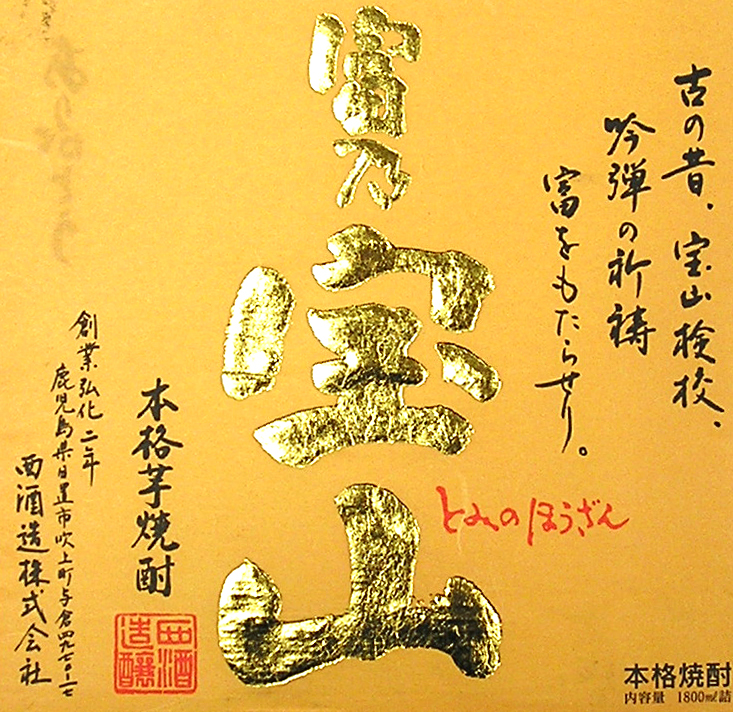 古の昔、宝山検校、
吟弾の祈祷
富をもたらせり。
富乃
宝山
とみのほうざん
本格芋焼酎
西酒造醸
創業弘化二年
鹿児島県日置市吹上町与倉四九七〇-一七
西酒造株式会社
ありがとう
本格焼酎
内容量 1800ml詰